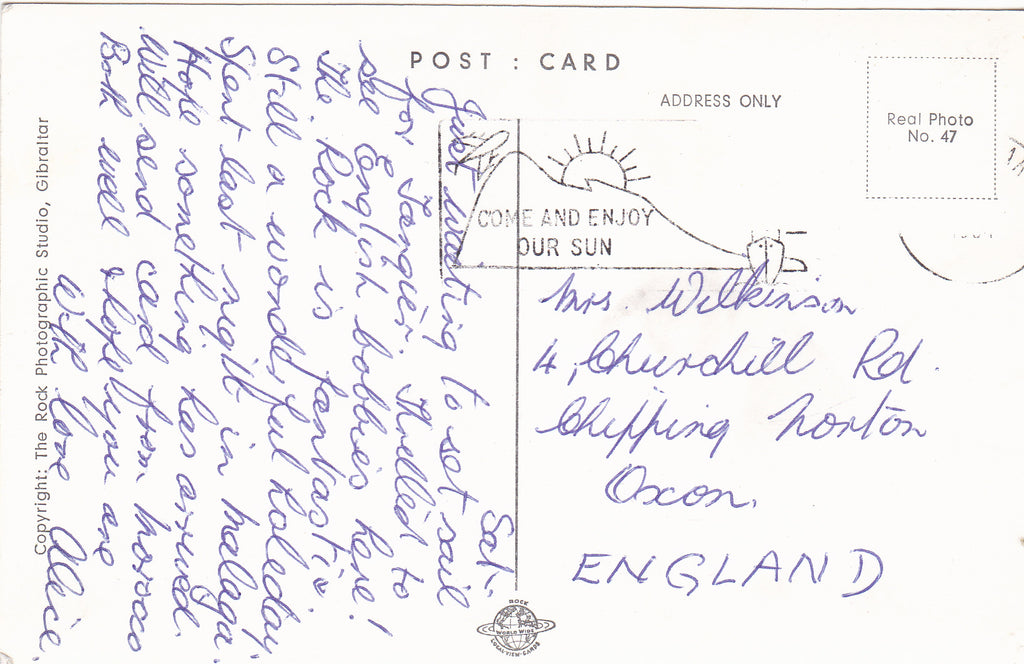 POST : CARD
ADDRESS ONLY
Real Photo
No. 47
COME AND ENJOY
OUR SUN
Sat.
Just waiting to set sail
for Tangier. Thrilled to
see English bobbies here!
The Rock is fantastic
Still a wonderful holeday
Spent last night in Malaga.
Hope something has arrived.
Will send card from Morocco
Both well & hope you are
With love Alice.
Mrs Wilkinson
4, Churchill Rd.
Chipping Norton
Oxon.
ENGLAND
Copyright: The Rock Photographic Studio, Gibraltar
ROCK
WORLD WIDE
LOCAL VIEW-CARDS